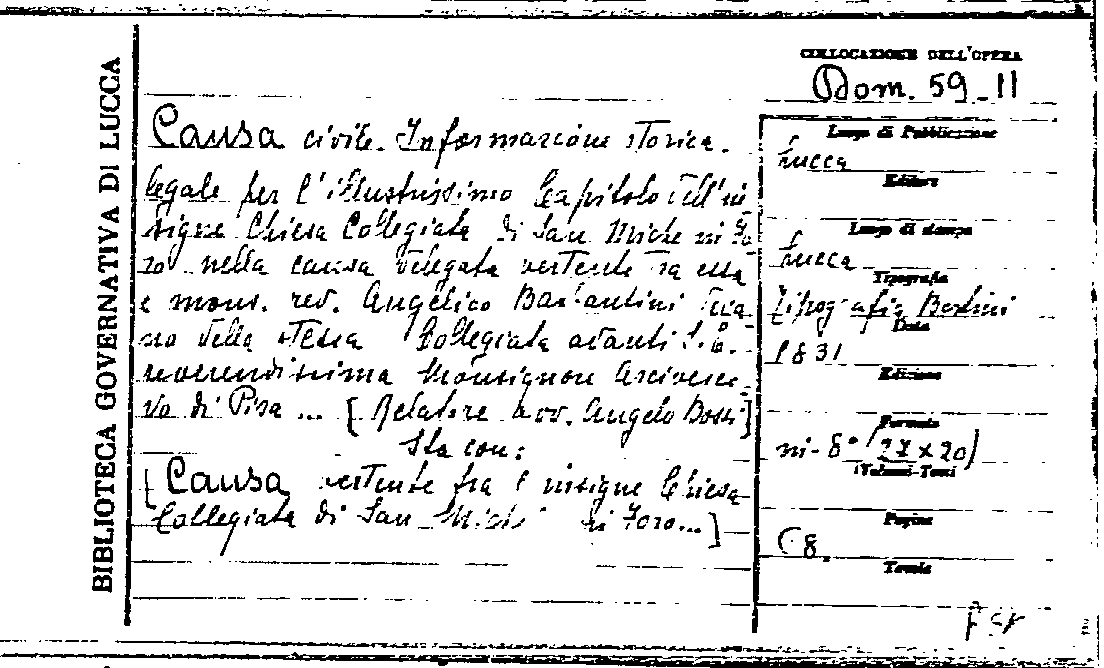 BIBLIOTECA GOVERNATIVA DI LUCCA
COLLOCAZIONE DELL'OPERA
Dom. 59-11
Causa civile. Informazione storica.
legale per l'illustrissimo Capitolo dell'in
signe Chiesa Collegiata di San Michele in Fo
ro nella causa delegata vertente tra essa
e mons. rev. Angelico Bastantini
no della stessa Collegiata avanti S. E.
reverendissima Monsignor Arcivesco-
vo di Pisa ... [Relatore Avv. Angelo Bossi]
Sta con:
[Causa vertente fra l'insigne Chiesa
Collegiata di San Michele in Foro...]
Luogo di Pubblicazione
Lucca
Editore
Luogo di stampa
Lucca
Tipografia
Tipografia Bertini
Data
1831
Edizione
Formato
in-8° (27 x 20)
(Volumi-Tomi)
Pagine
8.
Tavole